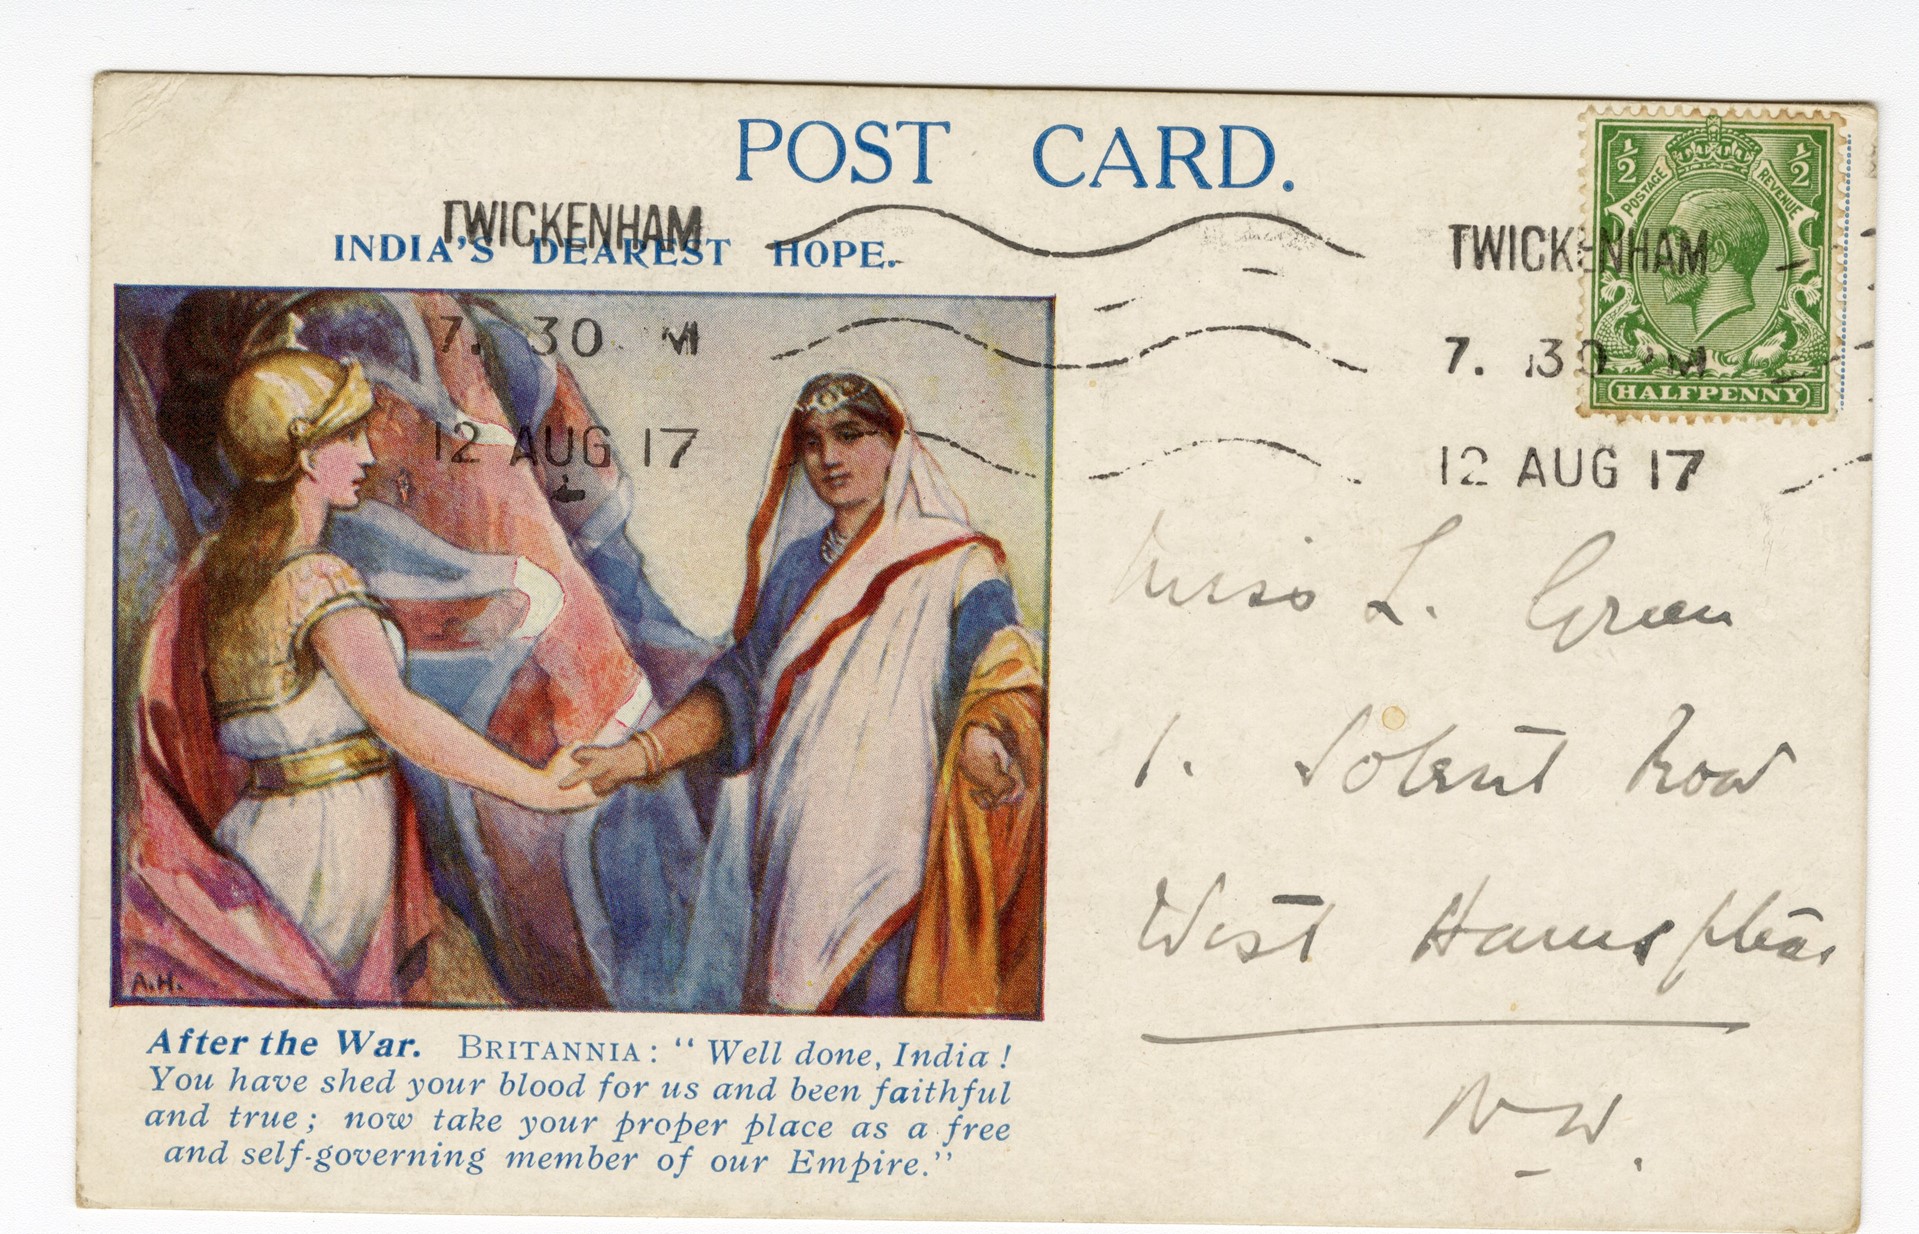 POST CARD.
TWICKENHAM
INDIA'S DEAREST HOPE.
7. 30 M
12 AUG 17
A.H.
After the War. BRITANNIA: "Well done, India!
You have shed your blood for us and been faithful
and true; now take your proper place as a free
and self-governing member of our Empire."
½ ½
POSTAGE REVENUE
HALFPENNY
TWICKENHAM
7. 30 M
12 AUG 17
Miss L. Green
1. Solent Road
West Hampstead
N-W.